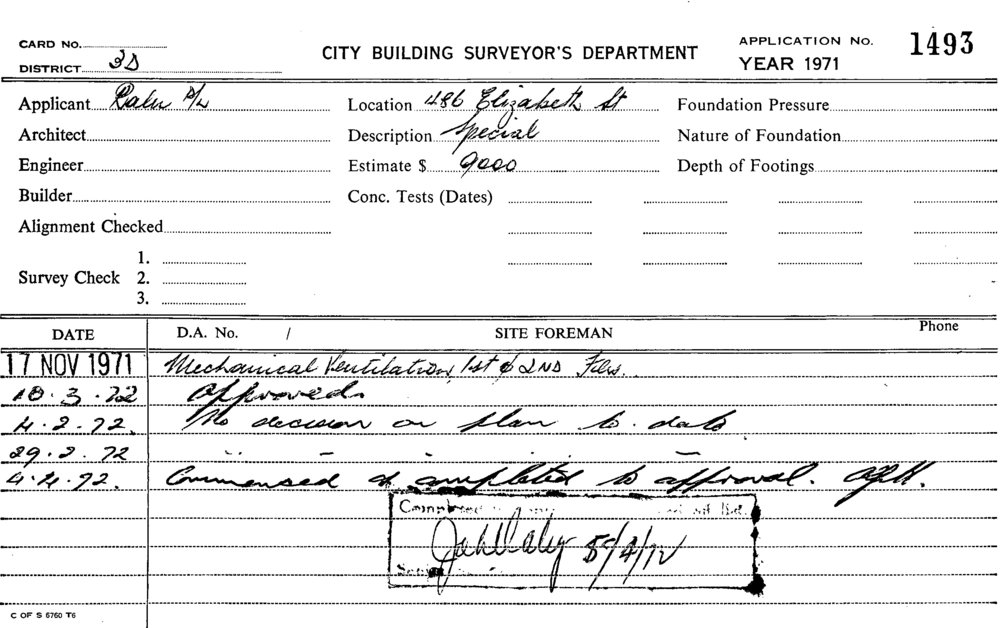 CARD No.
DISTRICT 3D
CITY BUILDING SURVEYOR'S DEPARTMENT
APPLICATION No. 1493
YEAR 1971
Applicant P/L
Location 486 Elizabeth St
Foundation Pressure
Architect
Description Special
Nature of Foundation
Engineer
Estimate $ 9000
Depth of Footings
Builder
Conc. Tests (Dates)
Alignment Checked
Survey Check 1.
2.
3.
DATE D.A. No. / SITE FOREMAN Phone
17 NOV 1971 Mechanical Ventilation 1st & 2ND Flrs.
10.3.72 Approved.
4.2.72. No decision on plan to date
29.2.72 " — " —
4.4.72. Commenced & completed to approval.
Completed
5/4/72
C OF S 6760 T6